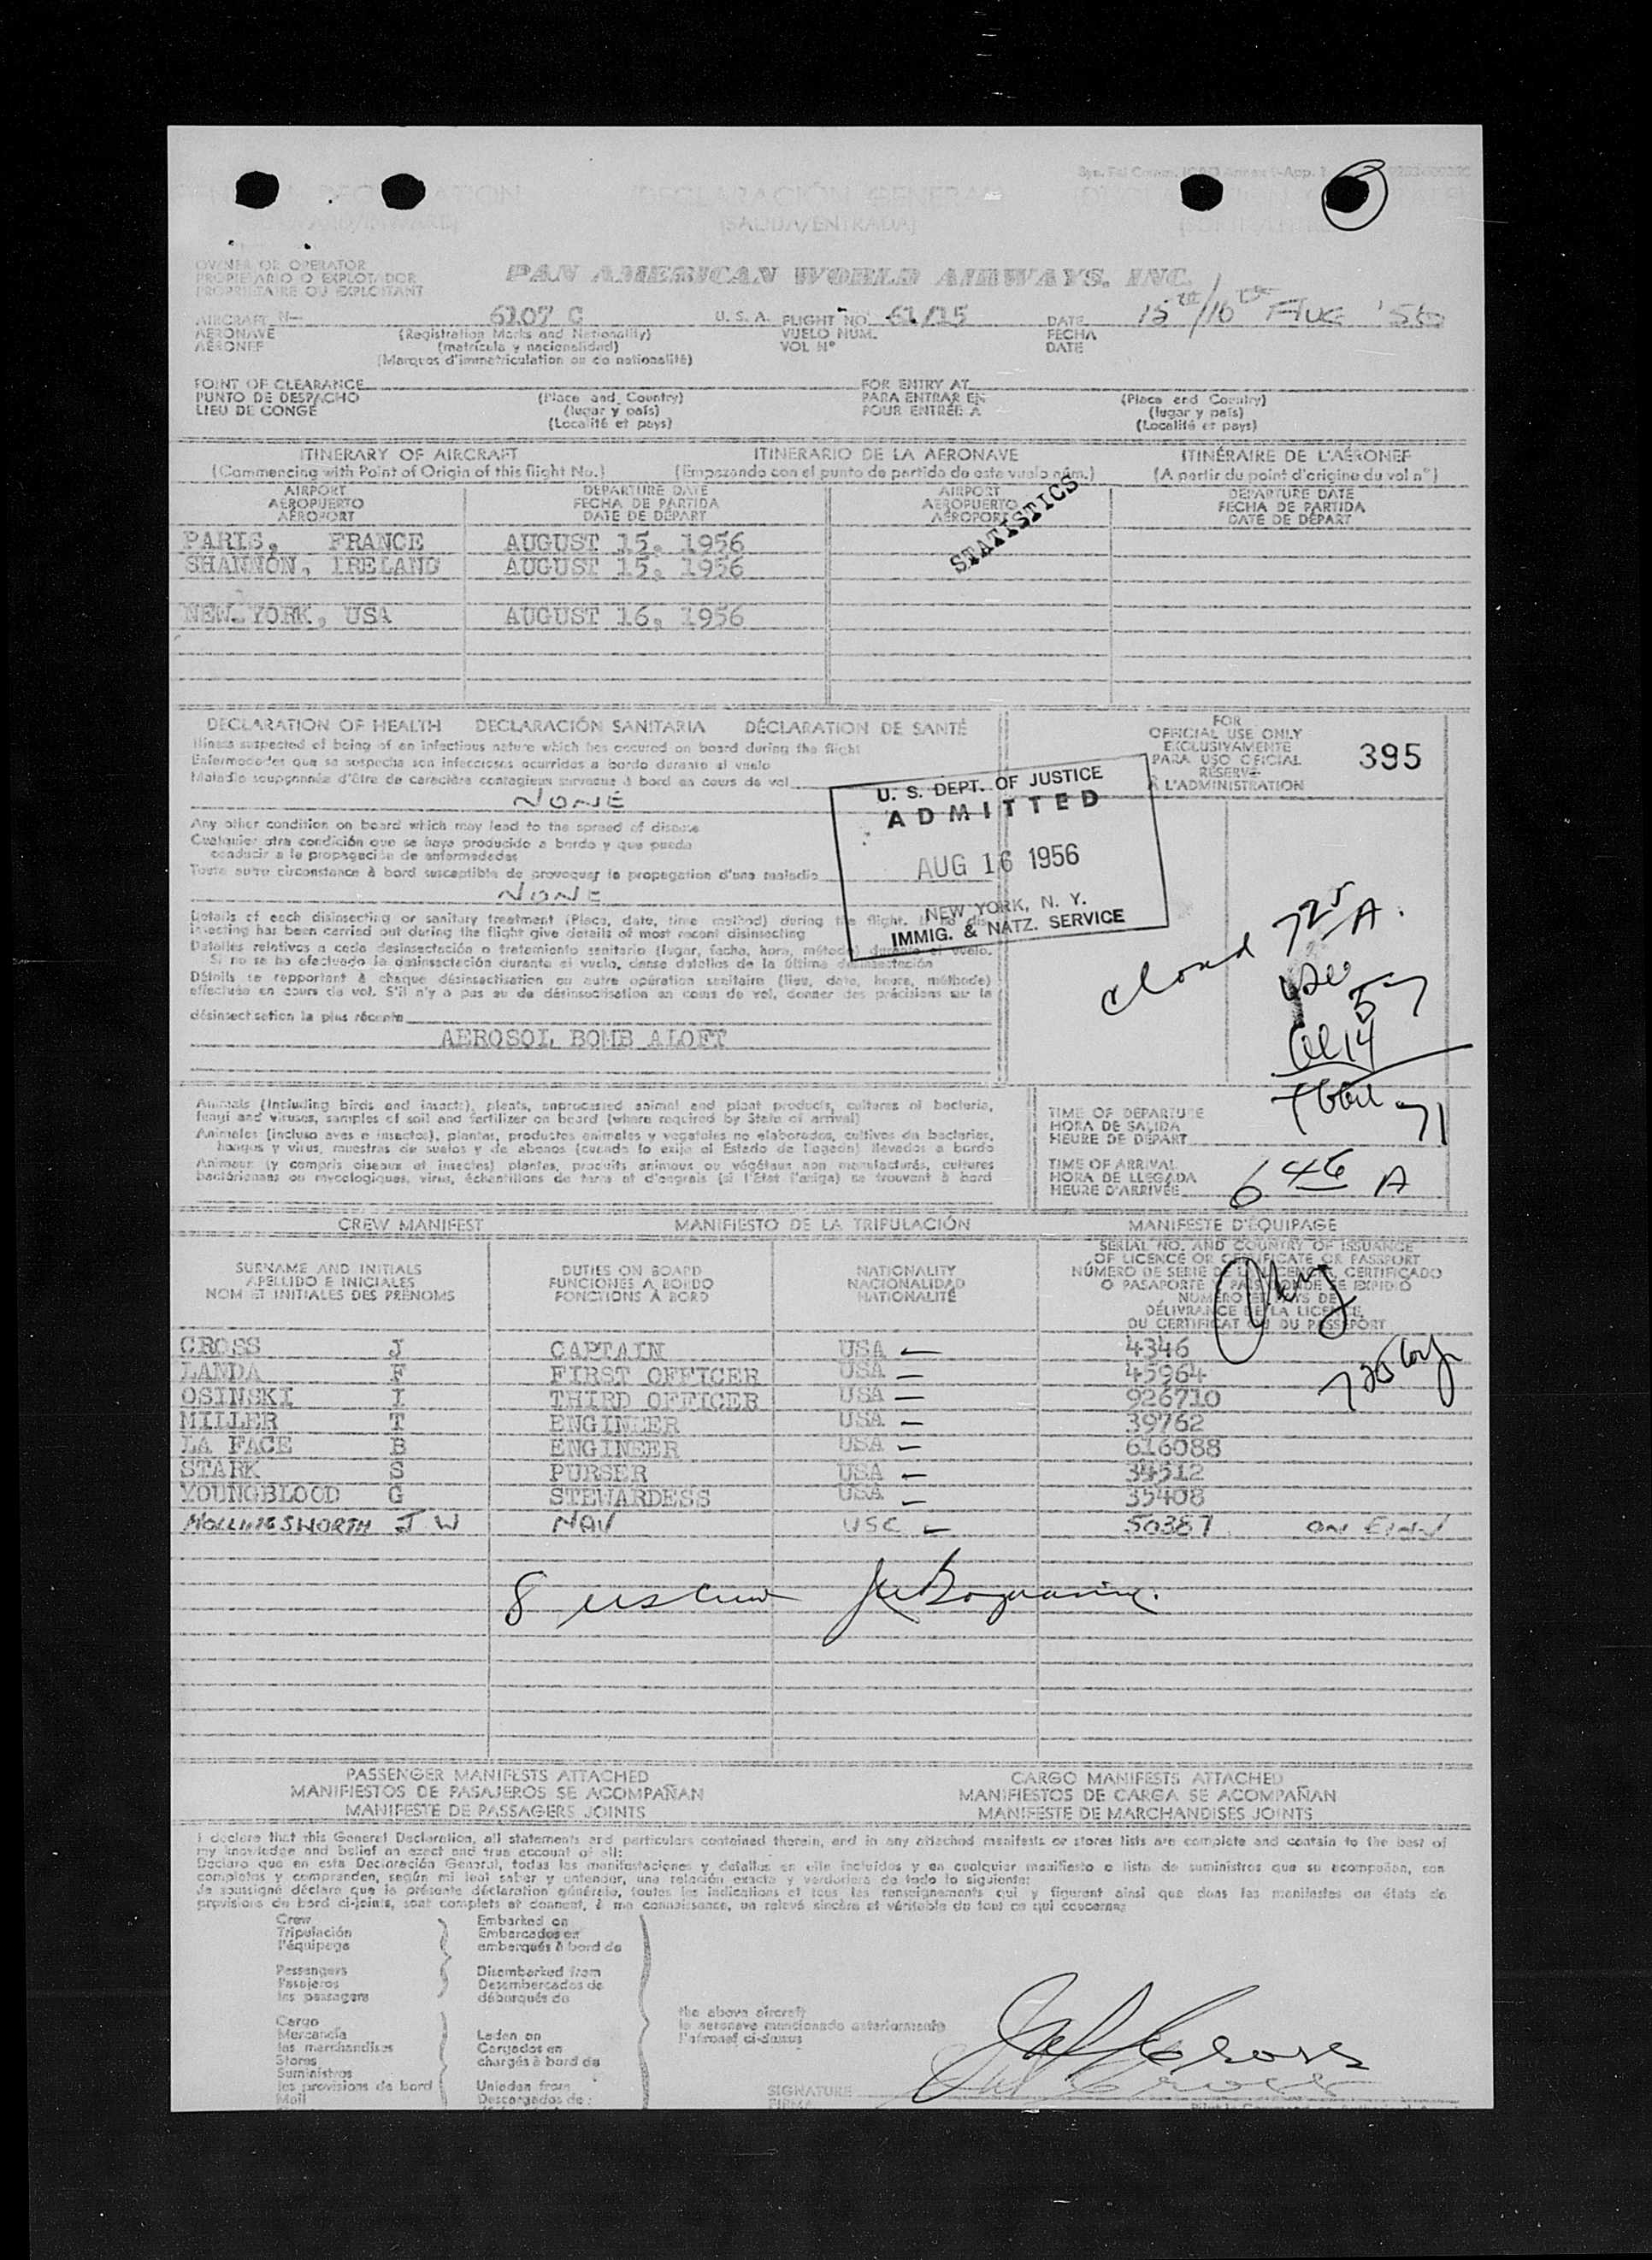 (SALIDA/ENTRADA)
OWNER OR OPERATOR
PROPIETARIO O EXPLOTADOR
PROPRIÉTAIRE OU EXPLOITANT
PAN AMERICAN WORLD AIRWAYS, INC.
AIRCRAFT N— 6107 C U. S. A. FLIGHT NO. 61/15 DATE 15th/16th AUG '56
AERONAVE (Registration Marks and Nationality) VUELO NUM. FECHA
AÉRONEF (matrícula y nacionalidad) VOL Nº DATE
(Marques d'immatriculation ou de nationalité)
POINT OF CLEARANCE FOR ENTRY AT
PUNTO DE DESPACHO (Place and Country) PARA ENTRAR EN (Place and Country)
LIEU DE CONGÉ (lugar y país) POUR ENTRÉE A (lugar y país)
(Localité et pays) (Localité et pays)
ITINERARY OF AIRCRAFT ITINERARIO DE LA AERONAVE ITINÉRAIRE DE L'AÉRONEF
(Commencing with Point of Origin of this flight No.) (Empezando con el punto de partida de este vuelo núm.) (A partir du point d'origine du vol nº)
AIRPORT DEPARTURE DATE AIRPORT DEPARTURE DATE
AEROPUERTO FECHA DE PARTIDA AEROPUERTO FECHA DE PARTIDA
AÉROPORT DATE DE DÉPART AÉROPORT DATE DE DÉPART
STATISTICS
PARIS, FRANCE AUGUST 15, 1956
SHANNON, IRELAND AUGUST 15, 1956
NEW YORK, USA AUGUST 16, 1956
DECLARATION OF HEALTH DECLARACIÓN SANITARIA DÉCLARATION DE SANTÉ
Illness suspected of being of an infectious nature which has occured on board during the flight
Enfermedades que se sospecha son infecciosas ocurridas a bordo durante el vuelo
Maladie soupçonnée d'être de caractère contagieux survenue à bord en cours de vol
NONE
FOR
OFFICIAL USE ONLY
EXCLUSIVAMENTE
PARA USO OFICIAL
RÉSERVÉ
À L'ADMINISTRATION
395
U. S. DEPT. OF JUSTICE
ADMITTED
AUG 16 1956
NEW YORK, N. Y.
IMMIG. & NATZ. SERVICE
Any other condition on board which may lead to the spread of disease
Cualquier otra condición que se haya producido a bordo y que pueda
conducir a la propagación de enfermedades
Toute autre circonstance à bord susceptible de provoquer la propagation d'une maladie
NONE
Details of each disinsecting or sanitary treatment (Place, date, time method) during the flight.
insecting has been carried out during the flight give details of most recent disinsecting
Detalles relativos a cada desinsectación o tratamiento sanitario (lugar, fecha, hora, método) durante el vuelo.
Si no se ha efectuado la desinsectación durante el vuelo, dense detalles de la última desinsectación
Détails se rapportant à chaque désinsectisation ou autre opération sanitaire (lieu, date, heure, méthode)
effectuée en cours de vol. S'il n'y a pas eu de désinsectisation en cours de vol, donner des précisions sur la
désinsectisation la plus récente
AEROSOL BOMB ALOFT
725 A.
57
14
71
Animals (Including birds and insects), plants, unprocessed animal and plant products, cultures of bacteria,
fungi and viruses, samples of soil and fertilizer on board (where required by State of arrival)
Animales (incluso aves e insectos), plantas, productos animales y vegetales no elaborados, cultivos de bacterias,
hongos y virus, muestras de suelos y de abonos (cuando lo exije el Estado de llegada) llevados a bordo
Animaux (y compris oiseaux et insectes) plantes, produits animaux ou végétaux non manufacturés, cultures
bactériennes ou mycologiques, virus, échantillons de terre et d'engrais (si l'État l'exige) se trouvant à bord
TIME OF DEPARTURE
HORA DE SALIDA
HEURE DE DÉPART
TIME OF ARRIVAL
HORA DE LLEGADA
HEURE D'ARRIVÉE 646 A
CREW MANIFEST MANIFIESTO DE LA TRIPULACIÓN MANIFESTE D'ÉQUIPAGE
SURNAME AND INITIALS DUTIES ON BOARD NATIONALITY
APELLIDO E INICIALES FUNCIONES A BORDO NACIONALIDAD
NOM ET INITIALES DES PRÉNOMS FONCTIONS À BORD NATIONALITÉ
SERIAL NO. AND COUNTRY OF ISSUANCE
OF LICENCE OR CERTIFICATE OR PASSPORT
NÚMERO DE SERIE DE LA LICENCIA, CERTIFICADO
O PASAPORTE Y PAIS DONDE SE EXPIDIÓ
NUMÉRO ET PAYS DE
DÉLIVRANCE DE LA LICENCE,
DU CERTIFICAT OU DU PASSEPORT
CROSS J CAPTAIN USA 4346
LANDA F FIRST OFFICER USA 45964
OSINSKI I THIRD OFFICER USA 926710
MILLER T ENGINEER USA 39762
LA FACE B ENGINEER USA 616088
STARK S PURSER USA 34512
YOUNGBLOOD G STEWARDESS USA 35408
HOLLINGSWORTH J W NAV USC 50387
8 us crew
PASSENGER MANIFESTS ATTACHED CARGO MANIFESTS ATTACHED
MANIFIESTOS DE PASAJEROS SE ACOMPAÑAN MANIFIESTOS DE CARGA SE ACOMPAÑAN
MANIFESTE DE PASSAGERS JOINTS MANIFESTE DE MARCHANDISES JOINTS
I declare that this General Declaration, all statements and particulars contained therein, and in any attached manifests or stores lists are complete and contain to the best of
my knowledge and belief an exact and true account of all:
Declaro que en esta Declaración General, todas las manifestaciones y detalles en ella incluidos y en cualquier manifiesto o lista de suministros que se acompañan, son
completos y comprenden, según mi leal saber y entender, una relación exacta y verdadera de todo lo siguiente:
Je soussigné déclare que la présente déclaration générale, toutes les indications et tous les renseignements qui y figurent ainsi que dans les manifestes ou états de
provisions de bord ci-joints, sont complets et donnent, à ma connaissance, un relevé sincère et véritable du tout ce qui concerne
Crew Embarked on
Tripulación Embarcados en
l'équipage embarqués à bord de
Passengers Disembarked from
Pasajeros Desembarcados de
les passagers débarqués de
Cargo
Mercancía Laden on
les marchandises Cargados en
Stores chargés à bord de
Suministros
les provisions de bord Unladen from
Mail Descargados de
the above aircraft
la aeronave mencionada anteriormente
l'aéronef ci-dessus
SIGNATURE
FIRMA